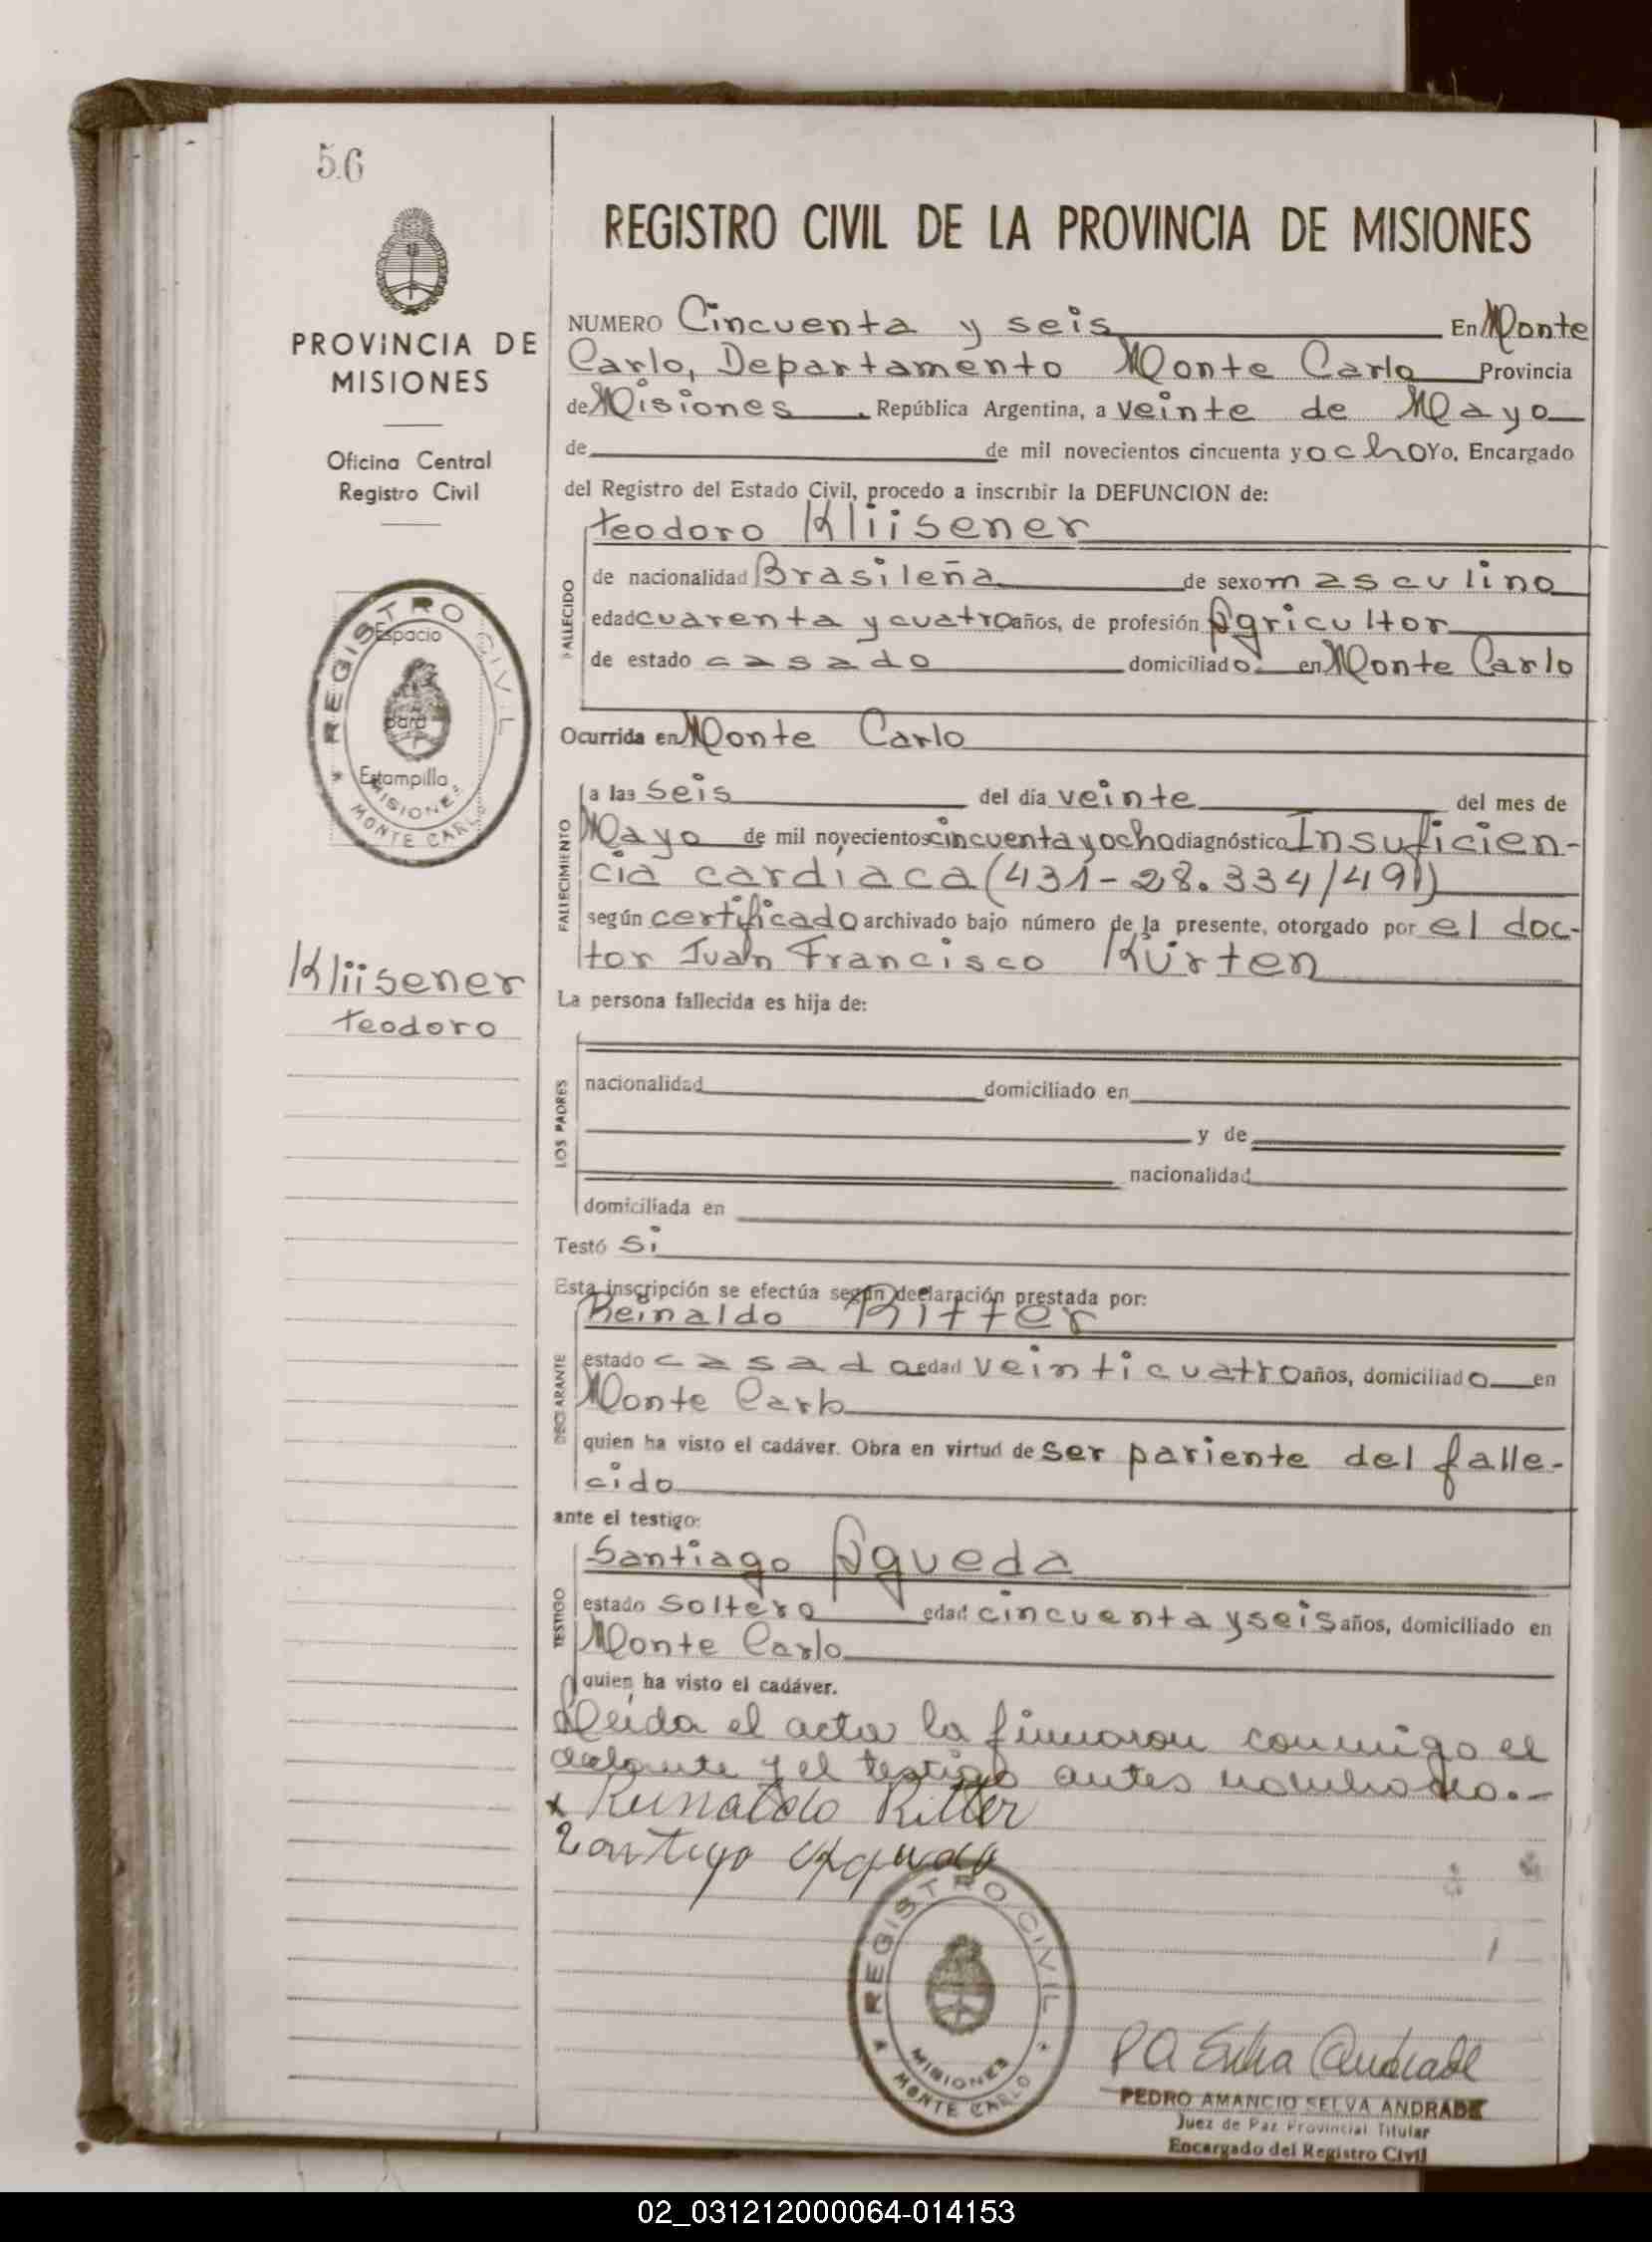 56
PROVINCIA DE
MISIONES
Oficina Central
Registro Civil
REGISTRO CIVIL
Espacio
para
Estampilla
MISIONES
MONTE CARLO
Kliisener
teodoro
REGISTRO CIVIL DE LA PROVINCIA DE MISIONES
NUMERO Cincuenta y seis En Monte
Carlo, Departamento Monte Carlo Provincia
de Misiones. República Argentina, a veinte de Mayo
de de mil novecientos cincuenta y ocho Yo, Encargado
del Registro del Estado Civil, procedo a inscribir la DEFUNCION de:
teodoro Kliisener
FALLECIDO
de nacionalidad Brasileña de sexo masculino
edad cuarenta y cuatro años, de profesión Agricultor
de estado casado domiciliado en Monte Carlo
Ocurrida en Monte Carlo
FALLECIMIENTO
a las seis del día veinte del mes de
Mayo de mil novecientos cincuenta y ocho diagnóstico Insuficien-
cia cardíaca (431-28.334/491)
según certificado archivado bajo número de la presente, otorgado por el doc-
tor Juan Francisco Kürten
La persona fallecida es hija de:
LOS PADRES
nacionalidad domiciliado en
y de
nacionalidad
domiciliada en
Testó si
Esta inscripción se efectúa según declaración prestada por:
Reinaldo Ritter
DECLARANTE
estado casado edad veinticuatro años, domiciliado en
Monte Carlo
quien ha visto el cadáver. Obra en virtud de ser pariente del falle-
cido
ante el testigo:
Santiago Agueda
TESTIGO
estado soltero edad cincuenta y seis años, domiciliado en
Monte Carlo
quien ha visto el cadáver.
Leída el acta la firmaron conmigo el
declarante y el testigo antes nombrado.-
x Reinaldo Ritter
Santiago Agueda
REGISTRO CIVIL
MISIONES
MONTE CARLO
PA Selva Andrade
PEDRO AMANCIO SELVA ANDRADE
Juez de Paz Provincial Titular
Encargado del Registro Civil
02_031212000064-014153